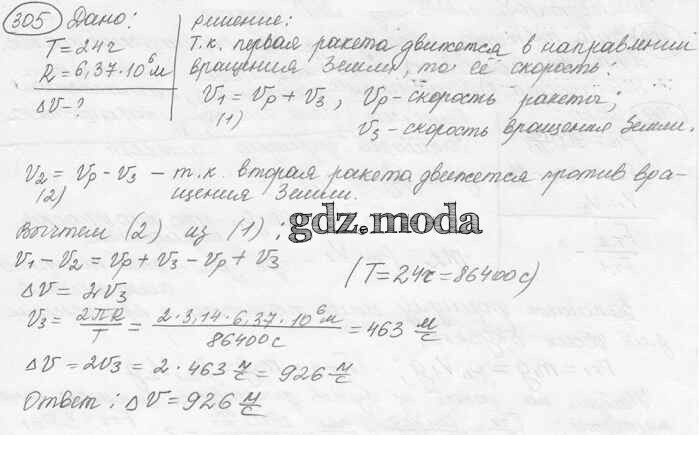 305 Дано:
T = 24 ч
R = 6,37·10⁶ м
ΔV - ?
решение:
т.к. первая ракета движется в направлении
вращения Земли, то её скорость:
V₁ = Vр + V₃, Vр - скорость ракеты;
(1)
V₃ - скорость вращения Земли.
V₂ = Vр - V₃ - т.к. вторая ракета движется против вра-
(2)
щения Земли.
Вычтем (2) из (1);
gdz.moda
V₁ - V₂ = Vр + V₃ - Vр + V₃
(T = 24ч = 86400 с)
ΔV = 2V₃
V₃ = 2πR/T = 2·3,14·6,37·10⁶ м/86400 с = 463 м/с
ΔV = 2V₃ = 2·463 м/с = 926 м/с
Ответ: ΔV = 926 м/с